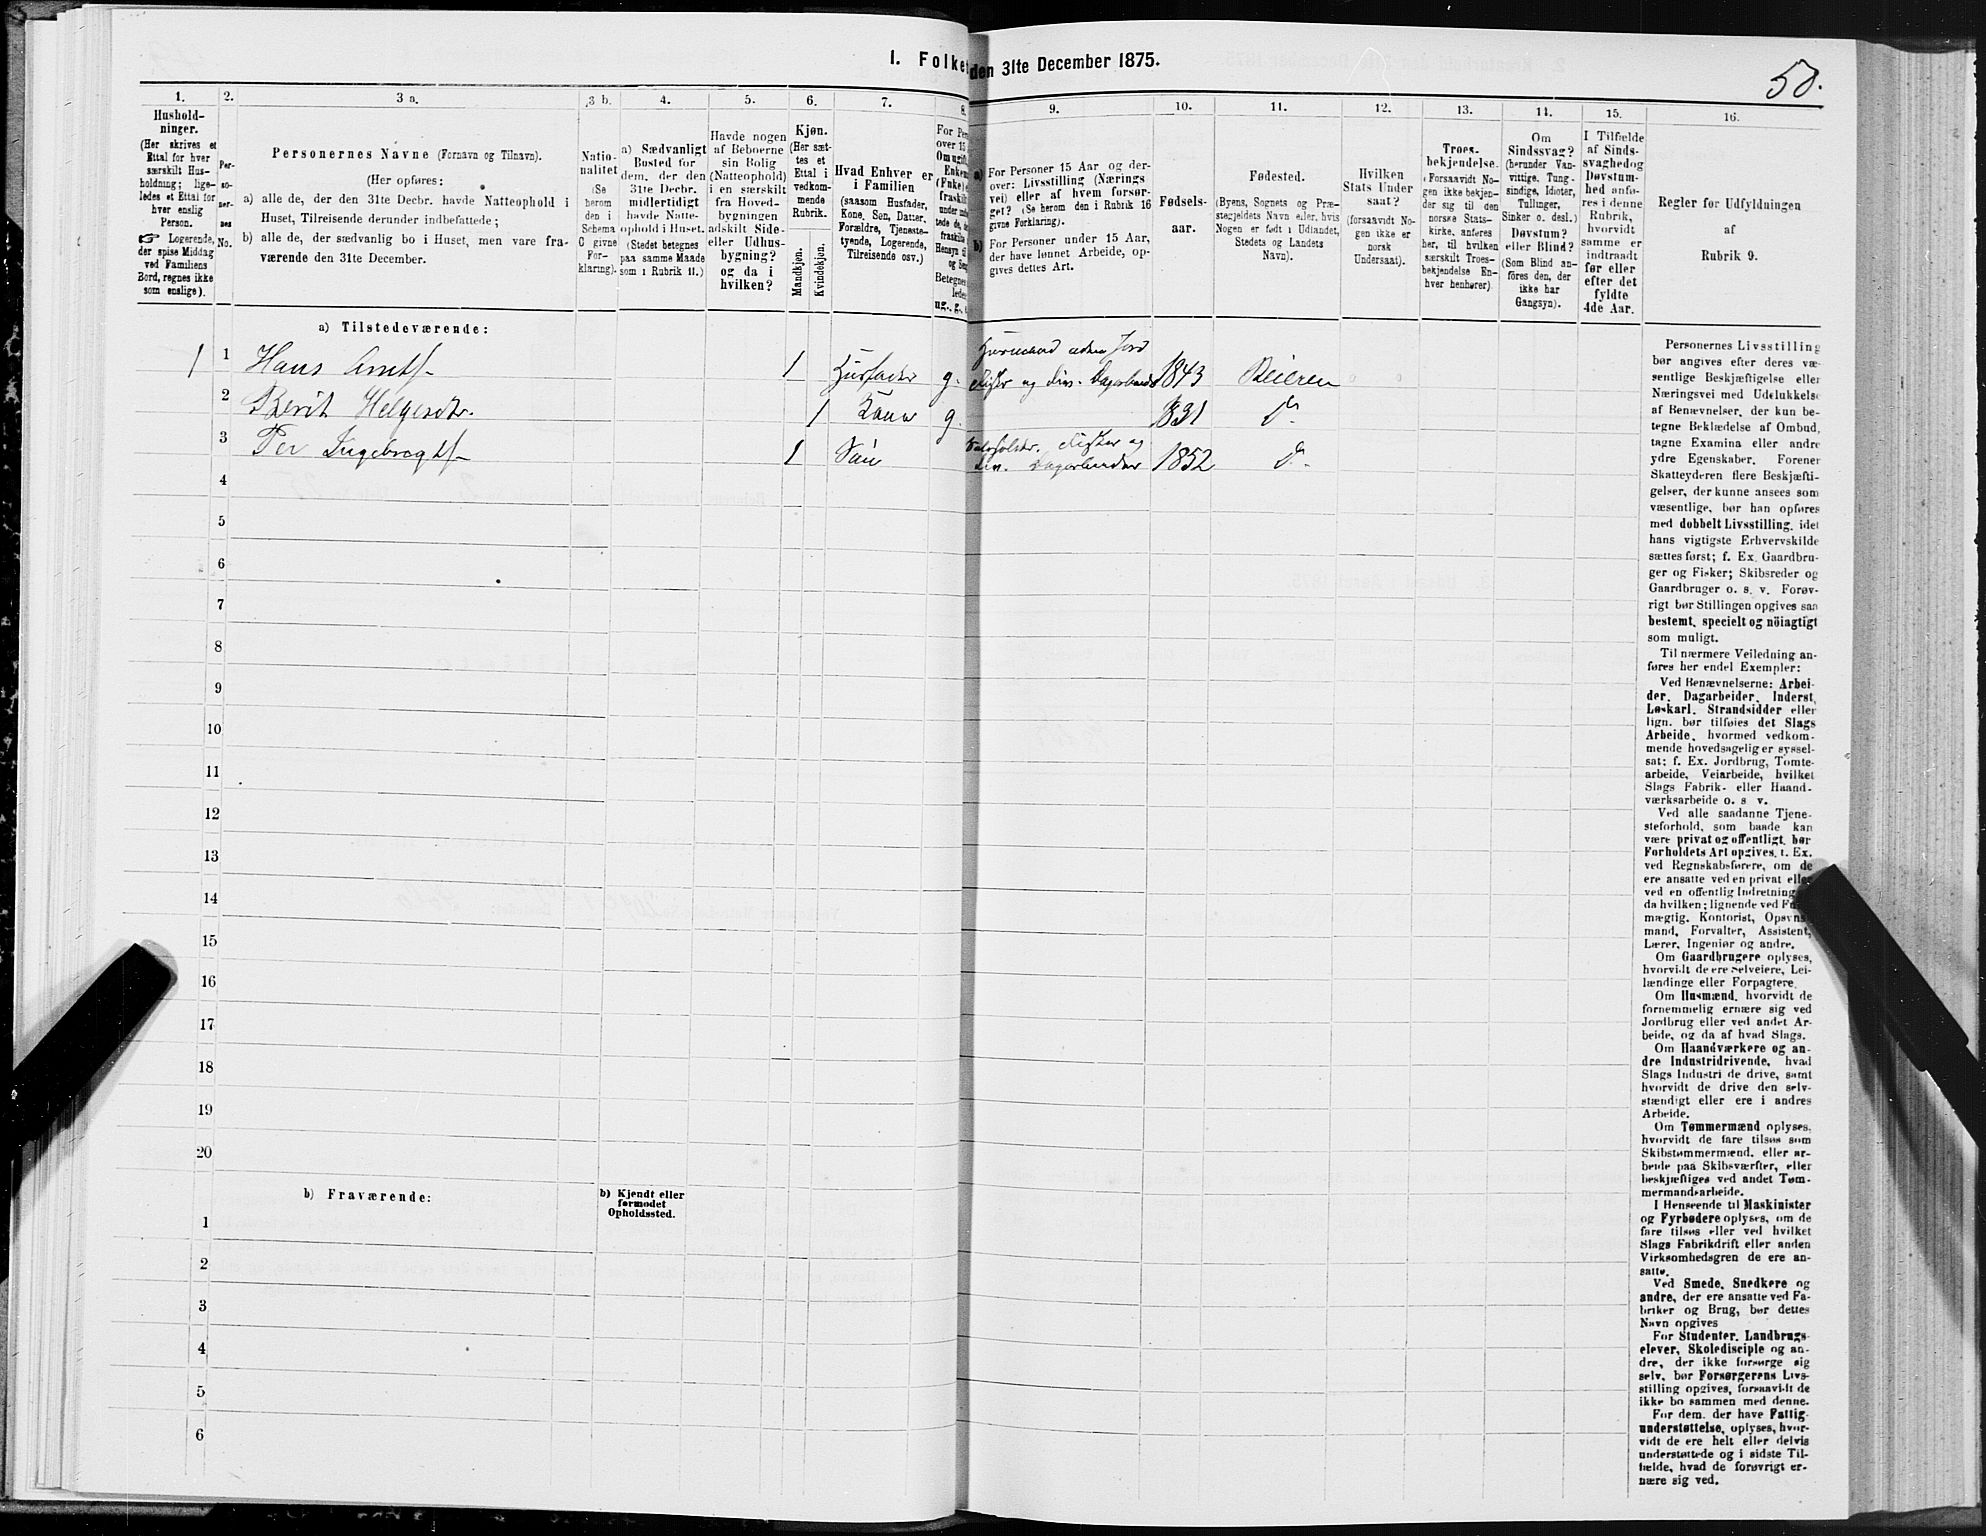 50.
I. Folke
den 31te December 1875.
1.
2.
3 a.
3 b.
4.
5.
6.
7.
8.
9.
10.
11.
12.
13.
14.
15.
16.
Hushold-
ninger.
(Her skrives et
Ettal for hver
særskilt Hus-
holdning; lige-
ledes et Ettal for
hver enslig
Person.
Logerende,
der spise Middag
ved Familiens
Bord, regnes ikke
som enslige).
Per-
so-
ner-
nes
No.
Personernes Navne (Fornavn og Tilnavn).
(Her opføres:
a) alle de, der den 31te Decbr. havde Natteophold i
Huset, Tilreisende derunder indbefattede;
b) alle de, der sædvanlig bo i Huset, men vare fra-
værende den 31te December.
Natio-
nalitet
(Se
herom
den i
Schema
C givne
For-
klaring).
a) Sædvanligt
Bosted for
dem, der den
31te Decbr.
midlertidigt
havde Natte-
ophold i Huset.
(Stedet betegnes
paa samme Maade
som i Rubrik 11.)
Havde nogen
af Beboerne
sin Bolig
(Natteophold)
i en særskilt
fra Hoved-
bygningen
adskilt Side-
eller Udhus-
bygning?
og da i
hvilken?
Kjøn.
(Her sæt-
tes et
Ettal i
vedkom-
mende
Rubrik.
Mandkjøn.
Kvindekjøn.
Hvad Enhver er
i Familien
(saasom Husfader,
Kone, Søn, Datter,
Forældre, Tjeneste-
tyende, Logerende,
Tilreisende osv.)
For Per
over 15
Om ugift,
Enkem
(Enke) e
fraskilt
a) For Personer 15 Aar og der-
over: Livsstilling (Nærings
vei) eller af hvem forsør-
get? (Se herom den i Rubrik 16
givne Forklaring).
b) For Personer under 15 Aar,
der have lønnet Arbeide, op-
gives dettes Art.
Fødsels-
aar.
Fødested.
(Byens, Sognets og Præ-
stegjeldets Navn eller, hvis
Nogen er født i Udlandet,
Stedets og Landets
Navn).
Hvilken
Stats Under
saat?
(forsaavidt No-
gen ikke er
norsk
Undersaat).
Troes-
bekjendelse.
(Forsaavidt No-
gen ikke bekjen-
der sig til den
norske Stats-
kirke, anføres
her, til hvilken
særskilt Troes-
bekjendelse En-
hver henhører)
Om
Sindssvag?
(herunder Van-
vittige, Tung-
sindige, Idioter,
Tullinger,
Sinker o. desl.)
Døvstum?
eller Blind?
(Som Blind an-
føres den, der
ikke har
Gangsyn).
I Tilfælde
af Sinds-
svaghed og
Døvstum-
hed anfø-
res i denne
Rubrik,
hvorvidt
samme er
indtraadt
før eller
efter det
fyldte
4de Aar.
Regler for Udfyldningen
af
Rubrik 9.
a) Tilstedeværende:
1 1 Hans Arntss. 1 Husfader g. Husmand uden Jord
Fisker og div. Dagarbeide 1843 Beieren
2 Berit Helgesdtr. 1 Kone g. 1831 Do
3 Per Ingebregts. 1 Søn
Fisker og
div. Dagarbeider 1852 Do
4
5
6
7
8
9
10
11
12
13
14
15
16
17
18
19
20
b) Fraværende:
b) Kjendt eller
formodet
Opholdssted.
1
2
3
4
5
6
Personernes Livsstilling
bør angives efter deres væ-
sentlige Beskjæftigelse eller
Næringsvei med Udelukkelse
af Benævnelser, der kun be-
tegne Beklædelse af Ombud,
tagne Examina eller andre
ydre Egenskaber. Forener
Skatteyderen flere Beskjæfti-
gelser, der kunne ansees som
væsentlige, bør han opføres
med dobbelt Livsstilling, idet
hans vigtigste Erhvervskilde
sættes først; f. Ex. Gaardbru-
ger og Fisker; Skibsreder og
Gaardbruger o. s. v. Forøv-
rigt bør Stillingen opgives saa
bestemt, specielt og nöiagtigt
som muligt.
Til nærmere Veiledning an-
føres her endel Exempler:
Ved Benævnelserne: Arbei-
der, Dagarbeider, Inderst,
Løskarl, Strandsidder eller
lign. bør tilføies det Slags
Arbeide, hvormed vedkom-
mende hovedsagelig er syssel-
sat; f. Ex. Jordbrug, Tomte-
arbeide, Veiarbeide, hvilket
Slags Fabrik- eller Haand-
værksarbeide o. s v.
Ved alle saadanne Tjene-
steforhold, som baade kan
være privat og offentligt, bør
Forholdets Art opgives, t. Ex.
ved Regnskabsførere, om de
ere ansatte ved en privat eller
ved en offentlig Indretning
da hvilken; lignende ved Fuld
mægtig, Kontorist, Opsyns
mand, Forvalter, Assistent,
Lærer, Ingeniør og andre.
Om Gaardbrugere oplyses,
hvorvidt de ere Selveiere, Lei-
lændinge eller Forpagtere.
Om Husmænd, hvorvidt de
fornemmelig ernære sig ved
Jordbrug eller ved andet Ar-
beide, og da af hvad Slags.
Om Haandværkere og an-
dre Industridrivende, hvad
Slags Industri de drive, samt
hvorvidt de drive den selv-
stændigt eller ere i andres
Arbeide.
Om Tømmermænd oplyses,
hvorvidt de fare tilsøs som
Skibstømmermænd, eller ar-
beide paa Skibsværfter, eller
beskjæftiges ved andet Tøm-
mermandsarbeide.
I Henseende til Maskinister
og Fyrbødere oplyses, om de
fare tilsøs eller ved hvilket
Slags Fabrikdrift eller anden
Virksomhedsgren de ere an-
satte.
Ved Smede, Snedkere og
andre, der ere ansatte ved Fa-
briker og Brug, bør dettes
Navn opgives
For Studenter, Landbrugs-
elever, Skoledisciple og an-
dre, der ikke forsørge sig
selv, bør Forsørgerens Livs-
stilling opgives, forsaavidt de
ikke bo sammen med denne.
For dem, der have Fattig-
understøttelse, oplyses, hvor-
vidt de ere helt eller delvis
understøttede og i sidste Til-
fælde, hvad de forøvrigt er-
nære sig ved.